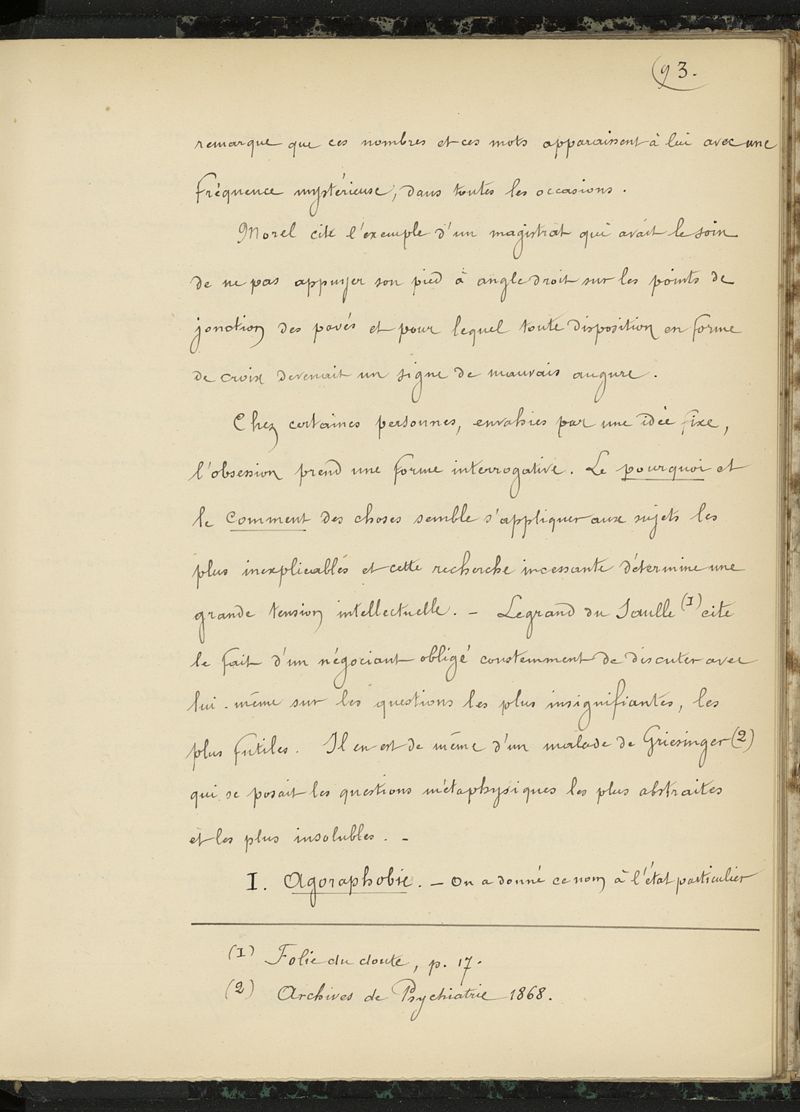 93.
remarque que ces nombres et ces mots apparaissent à lui avec une
fréquence mystérieuse, dans toutes les occasions.
Morel cite l'exemple d'un magistrat qui avait le soin
de ne pas appuyer son pied à angle droit sur les points de
jonction des pavés et pour lequel toute disposition en forme
de croix devenait un signe de mauvais augure.
Chez certaines personnes, envahies par une idée fixe,
l'obsession prend une forme interrogative. Le pourquoi et
le comment des choses semble s'appliquer aux sujets les
plus inexplicables et cette recherche incessante détermine une
grande tension intellectuelle. — Legrand du Saulle (1) cite
le fait d'un négociant obligé constemment de discuter avec
lui-même sur les questions les plus insignifiantes, les
plus futiles. Il en est de même d'un malade de Griesinger (2)
qui se posait les questions métaphysiques les plus abstraites
et les plus insolubles. —
I. Agoraphobie. — On a donné ce nom à l'état particulier
(1) Folie du doute, p. 17.
(2) Archives de Psychiatrie 1868.